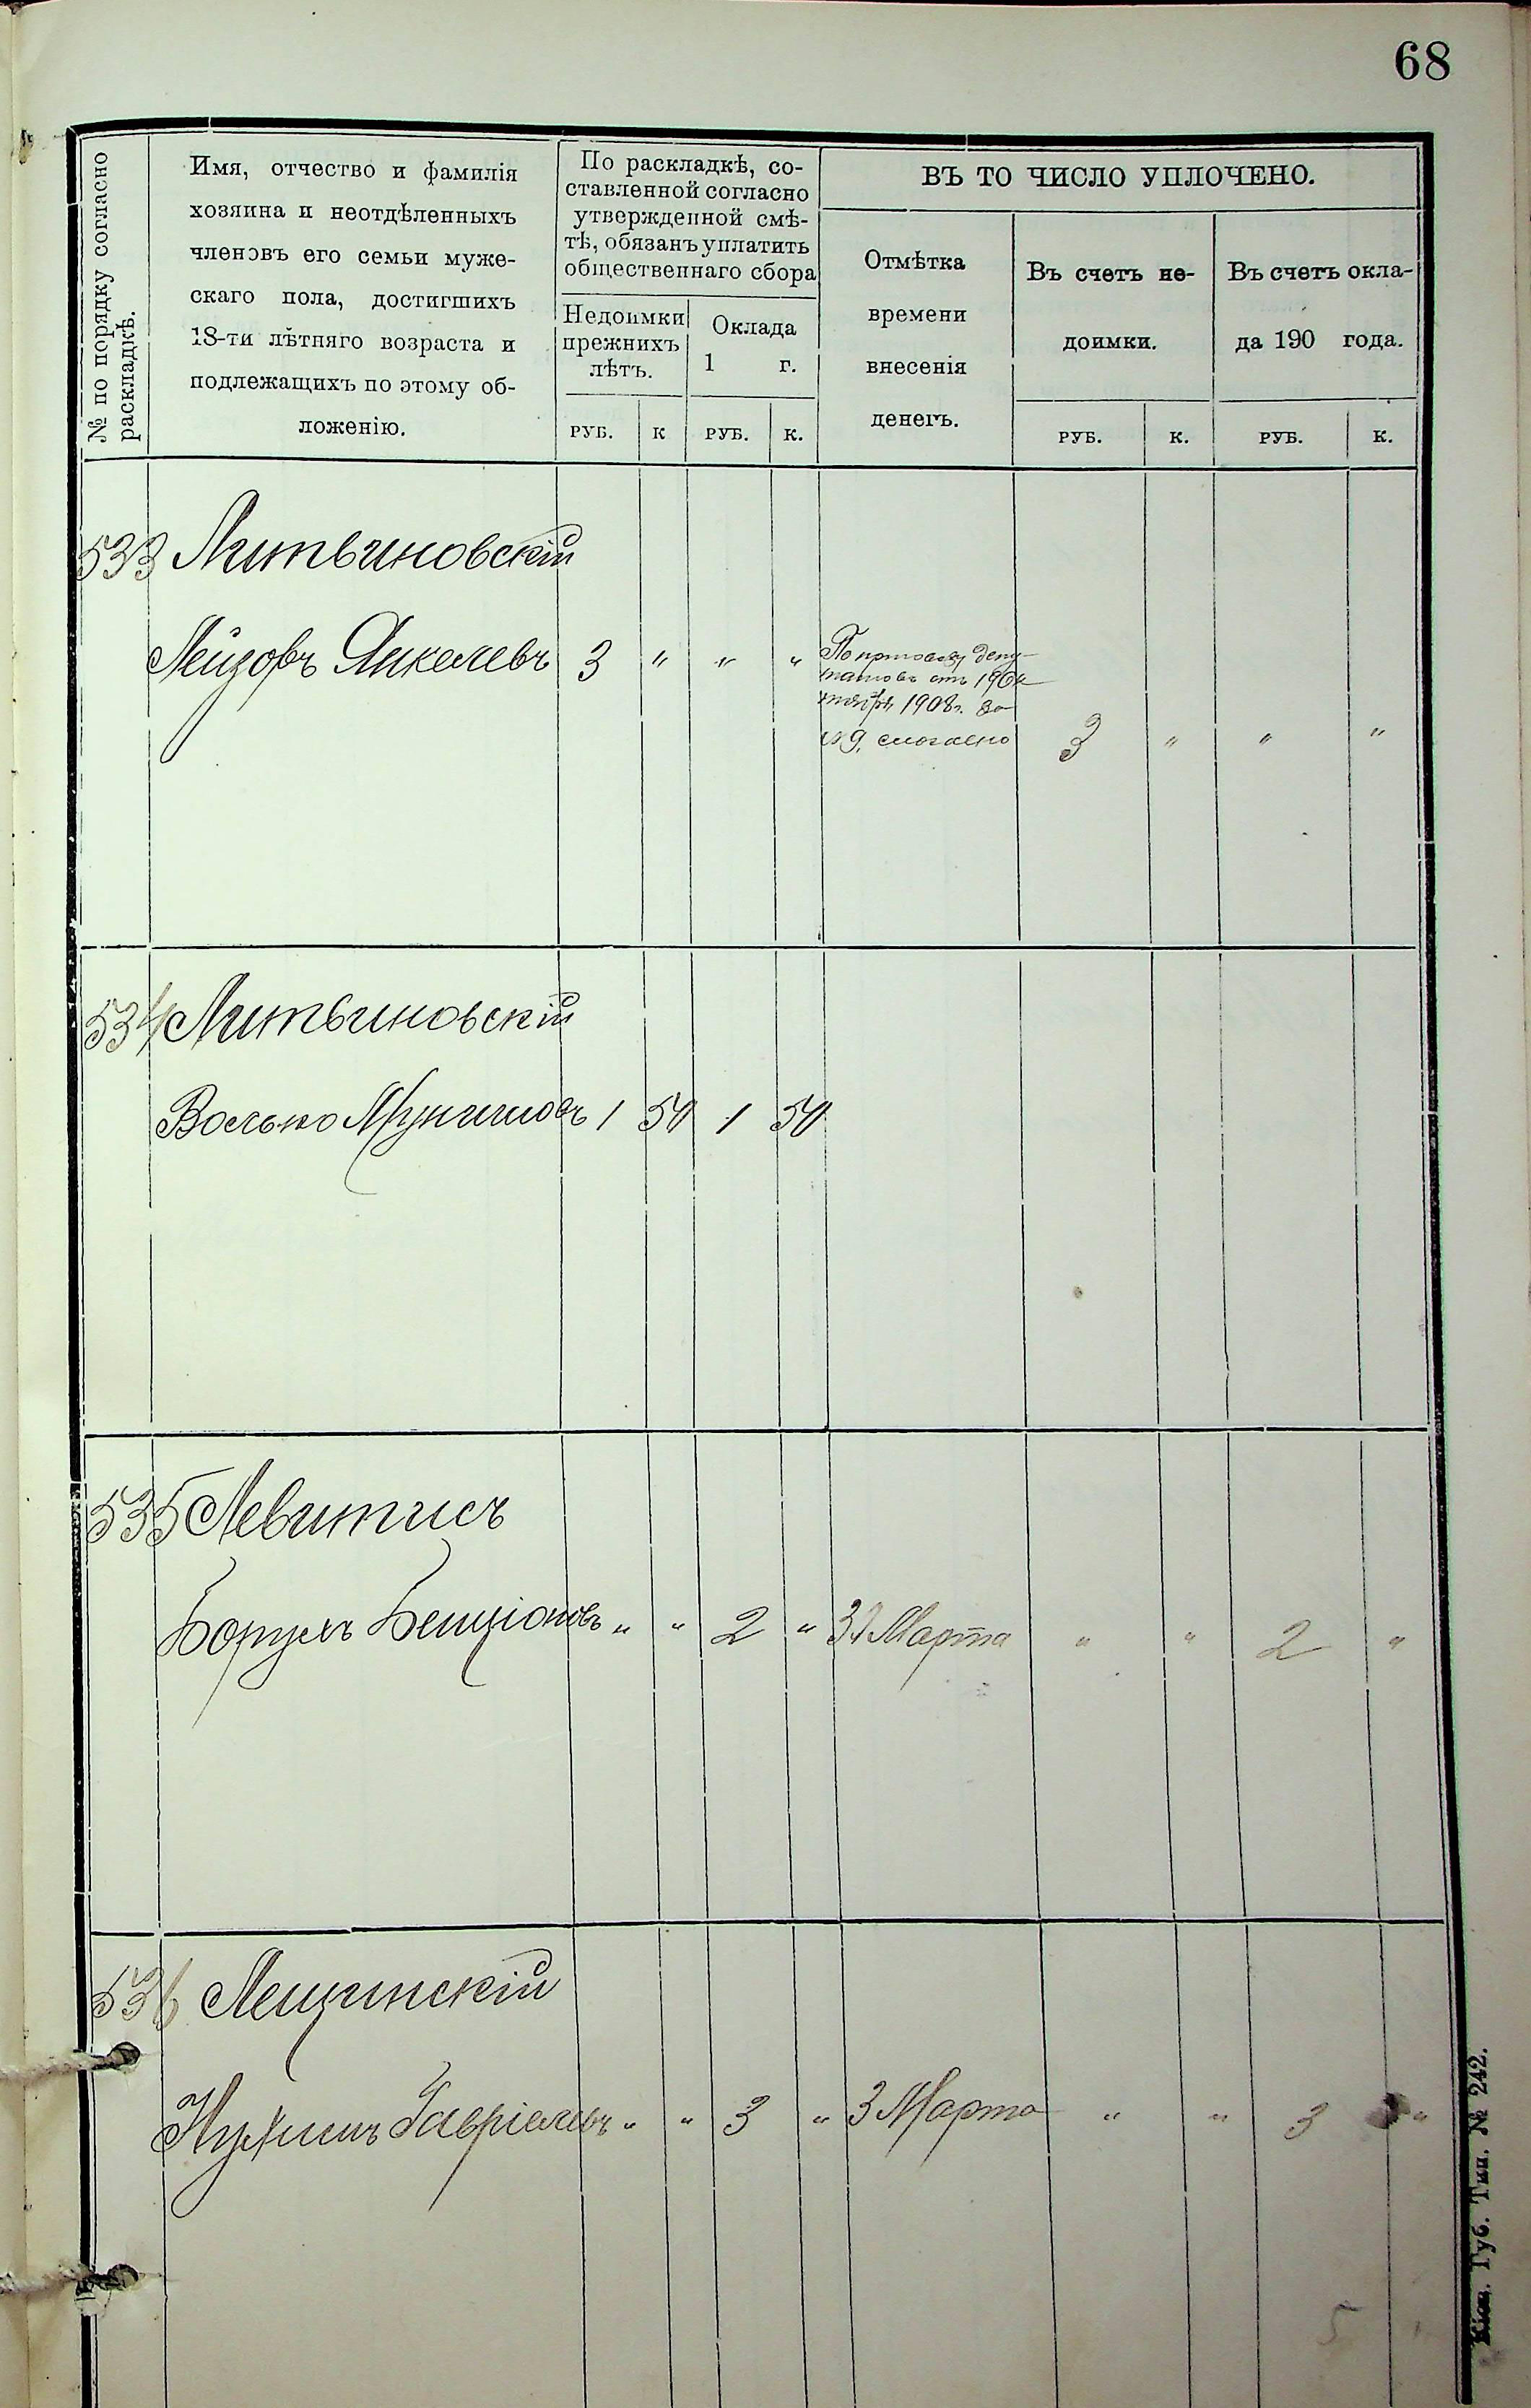 68
№ по порядку согласно
раскладкѣ.
Имя, отчество и фамилія
хозяина и неотдѣленныхъ
членовъ его семьи муже-
скаго пола, достигшихъ
18-ти лѣтняго возраста и
подлежащихъ по этому об-
ложенію.
По раскладкѣ, со-
ставленной согласно
утвержденной смѣ-
тѣ, обязанъ уплатить
общественнаго сбора
Недоимки
прежнихъ
лѣтъ.
Оклада
1 г.
РУБ. К РУБ. К.
ВЪ ТО ЧИСЛО УПЛОЧЕНО.
Отмѣтка
времени
внесенія
денегъ.
Въ счетъ не-
доимки.
Въ счетъ окла-
да 190 года.
РУБ. К. РУБ. К.
533 Литвиновскій
Лейзоръ Янкелевъ 3 " " "
депу-
татовъ отъ 19 Ок-
тября 1908 г. за
№ 9. сложено 3 " " "
534 Литвиновскій
Волько 1 50 1 50
535 Левитисъ
Борухъ Бенціоновъ " " 2 " 31 Марта " " 2 "
536 Лещинскій
Нухимъ Гавріелевъ " " 3 " 3 Марта " " 3 "
5
Кіев. Губ. Тип. № 242.